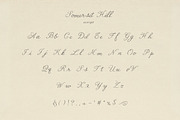 Somerset Hill
Aa Bb Cc Dd Ee Ff Gg Hh
Ii Jj Kk Ll Mm Nn Oo Pp
Qq Rr Ss Tt Uu Vv
Ww Xx Yy Zz